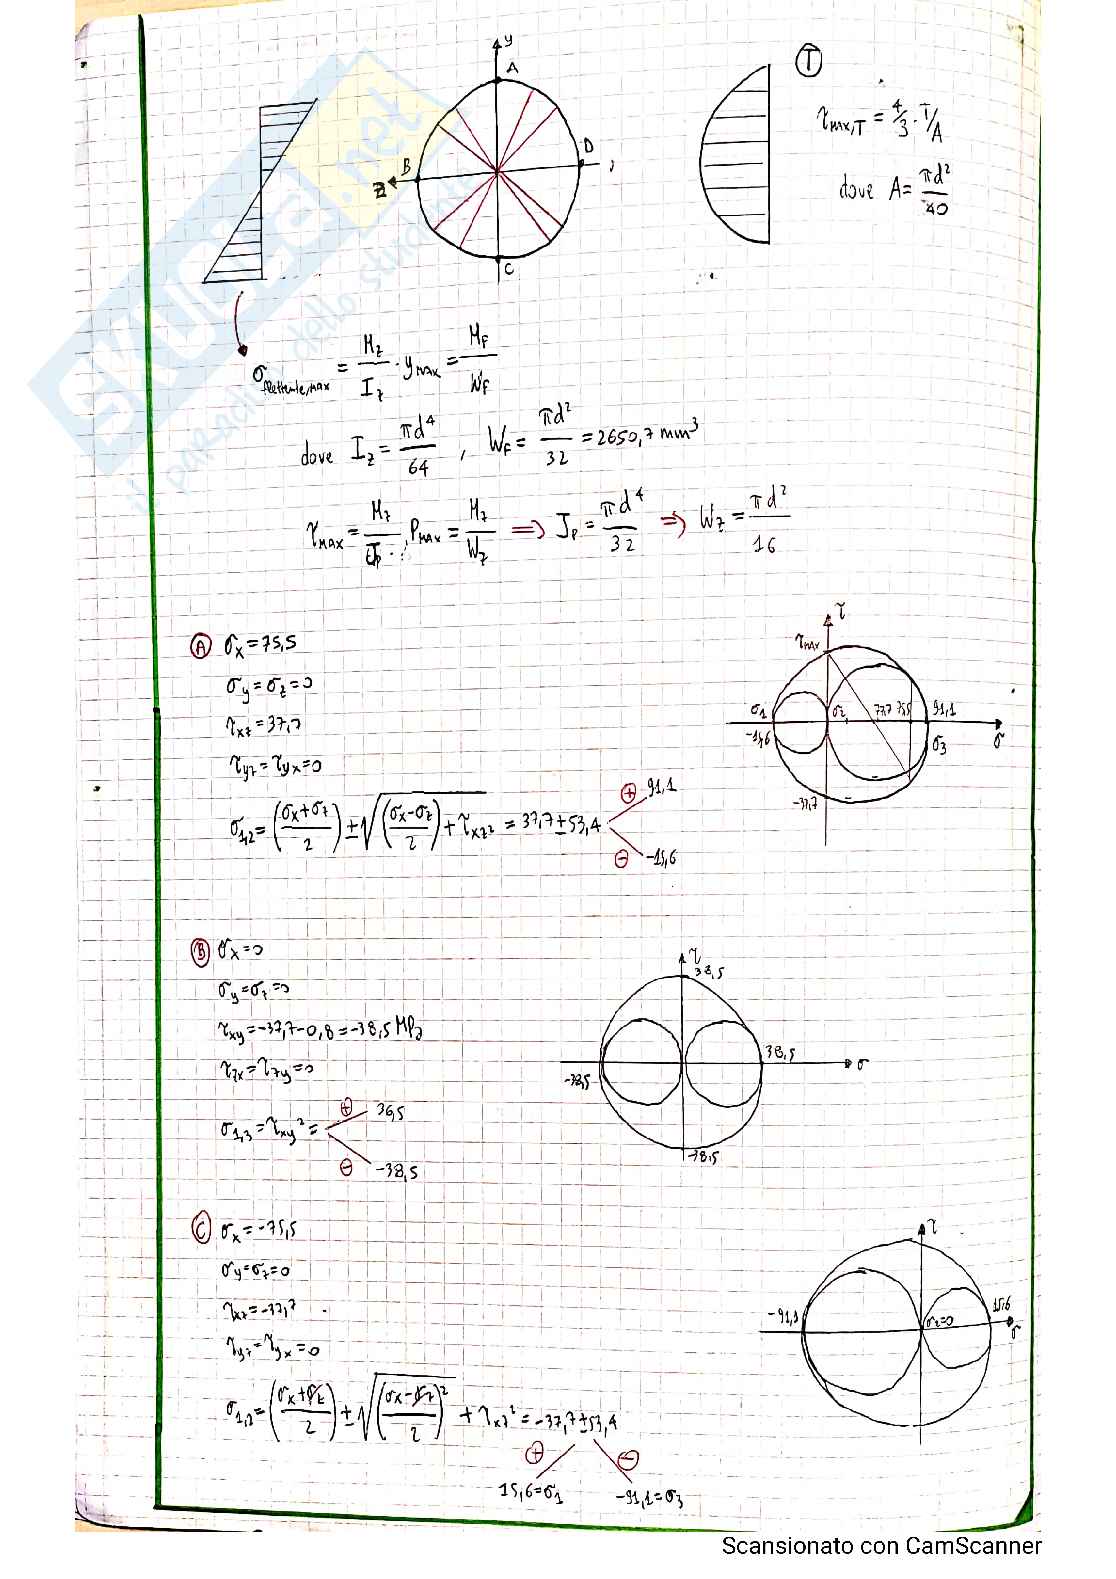 y
A
T
B
D
z
C
τmax,T = 4/3 · T/A
dove A = πd²/40
σflettente,max = Mz/Iz · ymax = MF/WF
dove Iz = πd⁴/64 , WF = πd²/32 = 2650,7 mm³
τMAX = Mz/Jp · ρMAX = Mz/Wz ⇒ Jp = πd⁴/32 ⇒ Wz = πd²/16
A σx = 75,5
σy = σz = 0
τxz = 37,7
τyz = τyx = 0
σ1,2 = ((σx+σz)/2) ± √((σx-σz)/2) + τxz² = 37,7 ± 53,4
⊕ 91,1
⊖ -15,6
τ
τMAX
σ1
σ2
37,7 75,5 91,1
-15,6
σ3
σ
-37,7
B σx = 0
σy = σz = 0
τxy = -37,7 - 0,8 = -38,5 MPa
τzx = τzy = 0
σ1,3 = τxy² =
⊕ 36,5
⊖ -38,5
τ
38,5
38,5
σ
-38,5
-38,5
C σx = -75,5
σy = σz = 0
τxz = -37,7
τyz = τyx = 0
σ1,2 = ((σx+σz)/2) ± √((σx-σz)/2)² + τxz² = -37,7 ± 53,4
⊕ ⊖
15,6 = σ1 -91,1 = σ3
τ
-91,1
σ2=0
15,6
σ
SKUOLA.net
il paradiso dello studente
Scansionato con CamScanner